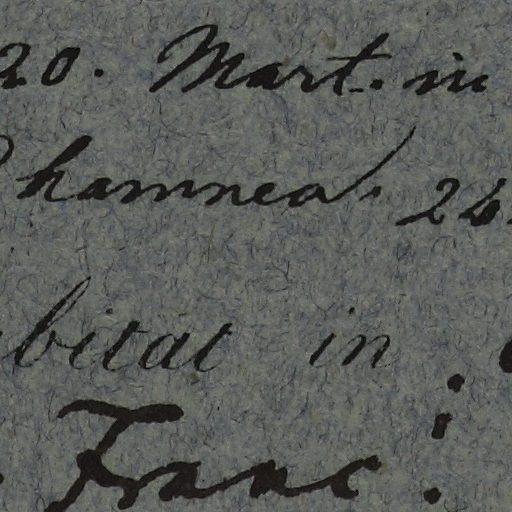 20. Mart. in
Rhamnea. 24.
bitat in
Franc!